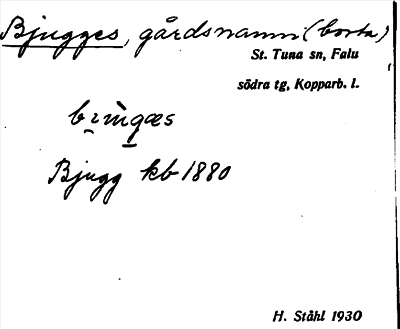 Bjugges, gårdsnamn (borta)
St. Tuna sn, Falu
södra tg, Kopparb. l.
Bjugg kb 1880
H. Ståhl 1930